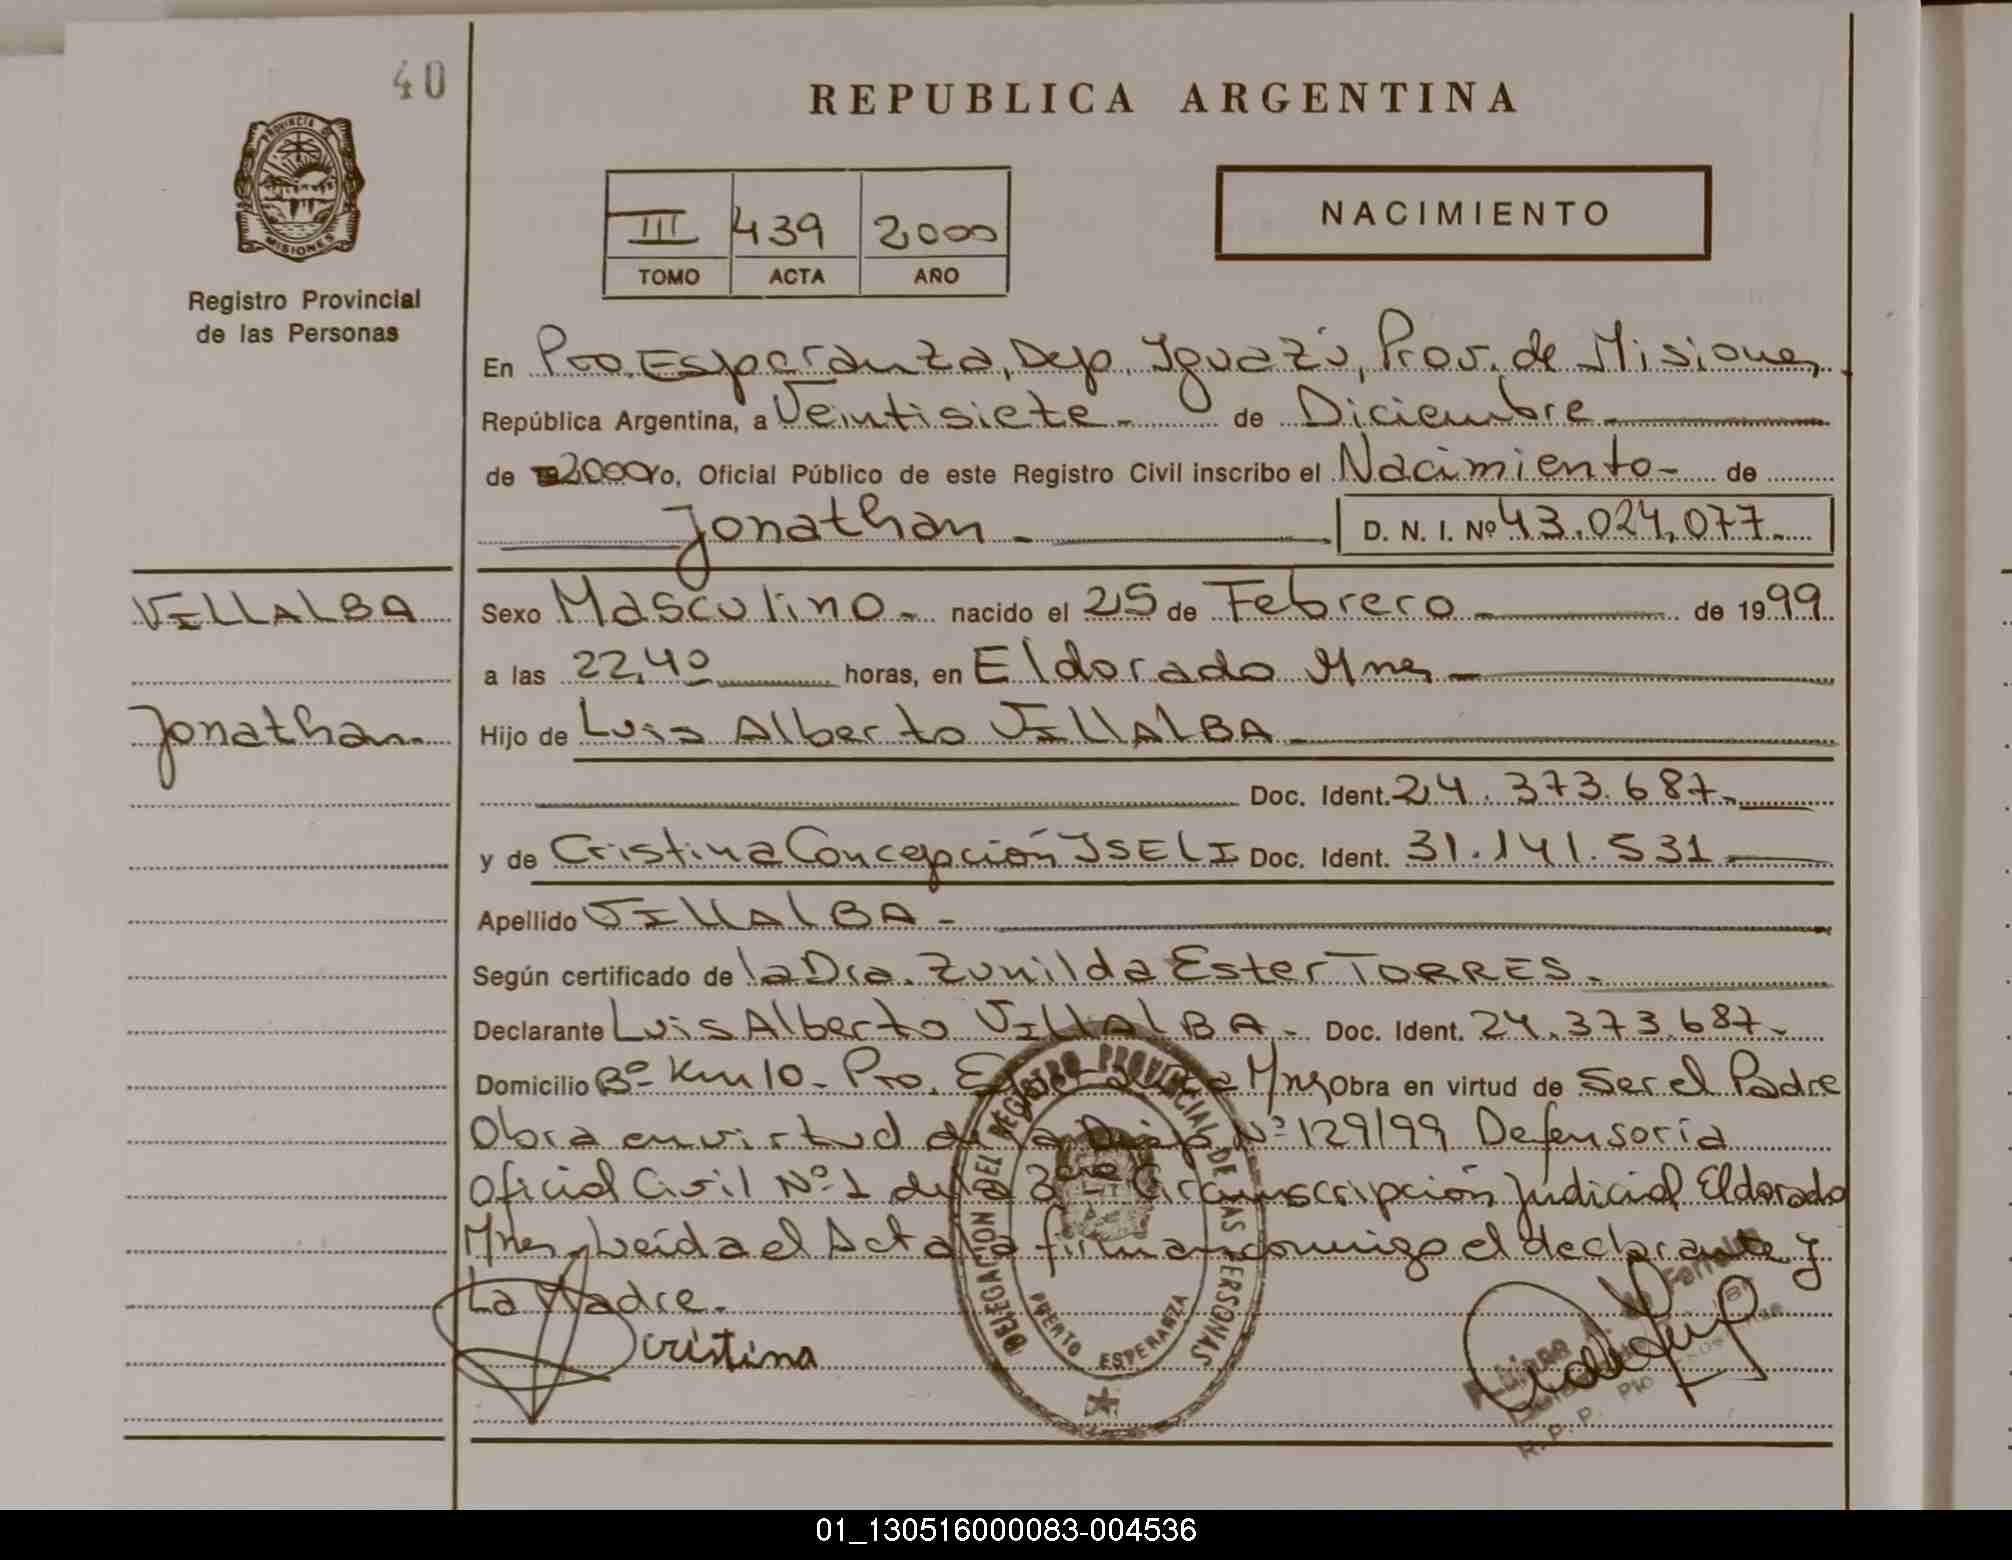 40
REPUBLICA ARGENTINA
PROVINCIA DE
MISIONES
Registro Provincial
de las Personas
III 439 2000
TOMO ACTA AÑO
NACIMIENTO
En Pto. Esperanza, Dep. Iguazú, Prov. de Misiones
República Argentina, a Veintisiete - de Diciembre
de 2000 Yo, Oficial Público de este Registro Civil inscribo el Nacimiento - de
Jonathan - D. N. I. Nº 43.024.077.-
VILLALBA
Jonathan.-
Sexo Masculino - nacido el 25 de Febrero - de 1999
a las 22,40 horas, en Eldorado Mnes -
Hijo de Luis Alberto VILLALBA -
Doc. Ident. 24.373.687.-
y de Cristina Concepción ISELI Doc. Ident. 31.141.531 -
Apellido VILLALBA -
Según certificado de la Dra. Zunilda Ester TORRES.-
Declarante Luis Alberto VILLALBA - Doc. Ident. 24.373.687.-
Domicilio Bº Km 10 - Pto. Esperanza Mnes Obra en virtud de Ser el Padre
Obra en virtud de la Disp. Nº 129/99 Defensoría
Oficial Civil Nº 1 de la 3era Circunscripción Judicial Eldorado
Mnes - Leída el Acta la firman conmigo el declarante y
La Madre.-
cristina
DELEGACION DEL REGISTRO PROVINCIAL DE LAS PERSONAS
PUERTO ESPERANZA
R. P. P.
01_130516000083-004536